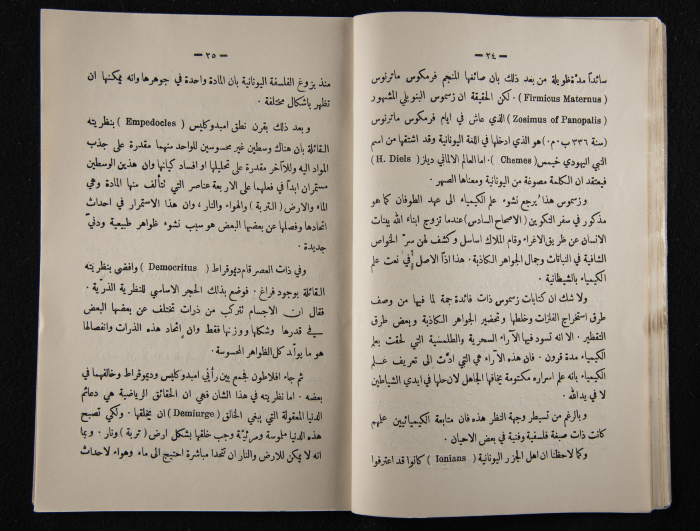 — ٢٤ —
سائداً مدة طويلة من بعد ذلك بان صائغها المنجم فرمكوس ماترنوس
( Firmicus Maternus ) . لكن الحقيقة ان زسموس البنوبلي المشهور
( Zosimus of Panopalis ) الذي عاش في ايام فرمكوس ماترنوس
(سنة ٣٣٦ ب . م) هو الذي ادخلها في اللغة اليونانية وقد اشتقها من اسم
النبي اليهودي خيمس (Chemes) . اما العالم الالماني ديلز ( H. Diels )
فيعتقد ان الكلمة مصوغة من اليونانية ومعناها الصهر .
وزسموس هذا يُرجع نشوء علم الكيمياء الى عهد الطوفان كما هو
مذكور في سفر التكوين (الاصحاح السادس) عندما تزوج ابناء الله ببنات
الانسان عن طريق الاغراء وقام الملاك اساسل وكشف لهن سرّ الخواص
الشافية في النباتات وجمال الجواهر الكاذبة . هذا اذاً الاصل في نعت علم
الكيمياء بالشيطانية .
ولا شك ان كتابات زسموس ذات فائدة جمة لما فيها من وصف
طرق استخراج الفلزات وخلطها وتحضير الجواهر الكاذبة وبعض طرق
التقطير . الا انه تسود فيها الآراء السحرية والطلسمية التي لحقت بعلم
الكيمياء مدة قرون . فان هذه الآراء هي التي ادّت الى تعريف علم
الكيمياء بانه علم اسراره مكتومة يخافها الجاهل لان حلها في ايدي الشياطين
لا في يد الله .
وبالرغم من تسيطر وجهة النظر هذه فان متابعة الكيميائيين علمهم
كانت ذات صبغة فلسفية وفنية في بعض الاحيان .
وكما لاحظنا ان اهل الجزر اليونانية ( Ionians ) كانوا قد اعترفوا
— ٢٥ —
منذ بزوغ الفلسفة اليونانية بان المادة واحدة في جوهرها وانه يمكنها ان
تظهر باشكال مختلفة .
و بعد ذلك بقرن نطق امبدوكليس ( Empedocles ) بنظريته
القائلة بان هناك وسطين غير محسوسين للواحد منهما مقدرة على جذب
المواد اليه وللآخر مقدرة على تحليلها او افساد كيانها وان هذين الوسطين
مستمران ابداً في فعلهما على الاربعة عناصر التي تتألف منها المادة وهي
الماء والارض (التربة) والهواء والنار ، وان هذا الاستمرار في احداث
اتحادها وفصلها عن بعضها البعض هو سبب نشوء ظواهر طبيعية ودنىّ
جديدة .
وفي ذات العصر قام ديموقراط ( Democritus ) وافضى بنظريته
القائلة بوجود فراغ . فوضع بذلك الحجر الاساسي للنظرية الذرية .
فقال ان الاجسام تتركب من ذرات تختلف عن بعضها البعض
في قدرها وشكلها ووزنها فقط وان إتحاد هذه الذرات وانفصالها
هو ما يوأند كل الظواهر المحسوسة .
ثم جاء افلاطون فجمع بين رأيي امبدوكليس وديموقراط وخالفهما في
بعضه . اما نظريته في هذا الشان فهي ان الحقائق الرياضية هي دعائم
الدنيا المعقولة التي يبغي الخالق ( Demiurge ) ان يخلقها . ولكي تصبح
هذه الدنيا ملموسة ومرئية وجب خلقها بشكل ارض (تربة) ونار . وبما
انه لا يمكن للارض والنار ان تتحدا مباشرة احتيج الى ماء وهواء لاحداث